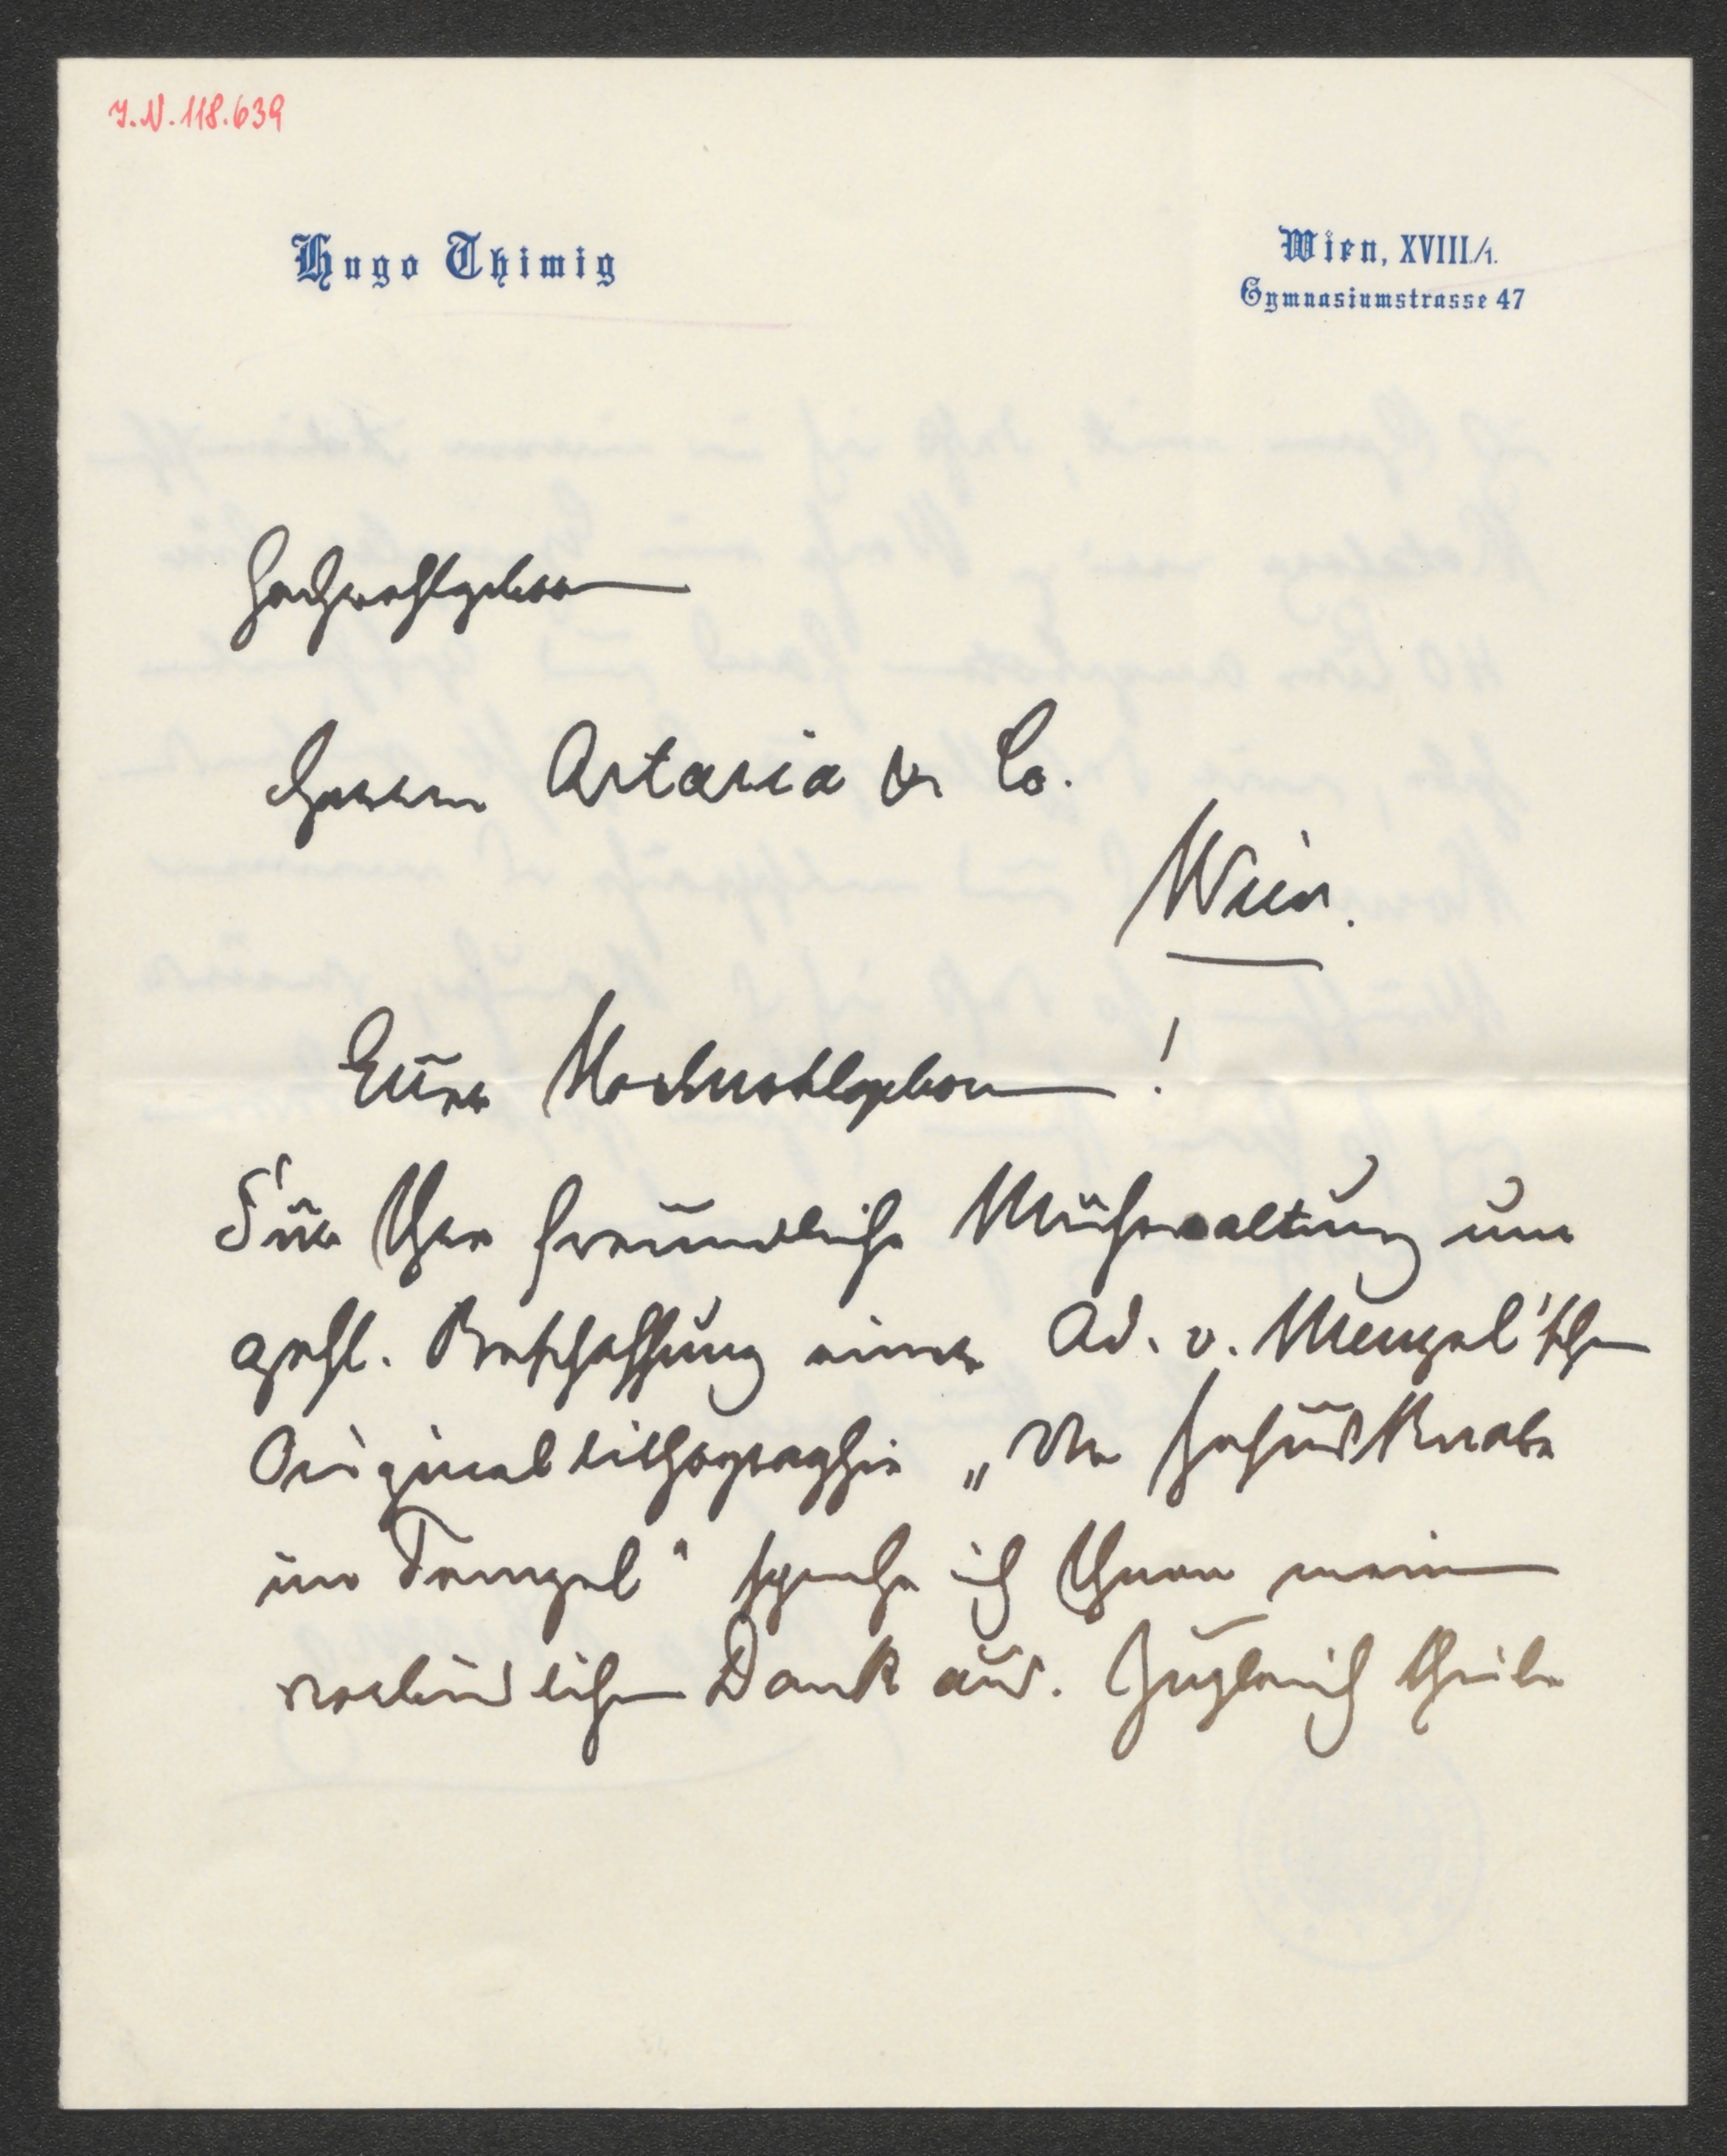 J.N. 118.639
Hugo Thimig
Wien, XVIII./1.
Gymnasiumstrasse 47
Hochwohlgeboren
Herren Artaria & Co.
Wien.
Euer Hochwohlgeboren!
Für Ihre freundliche Mühewaltung um
gefl. Beschaffung einer Ad. v. Menzel'schen
Originallithographie „Der Jesusknabe
im Tempel" spreche ich Ihnen meinen
verbindlichen Dank aus. Zugleich theile